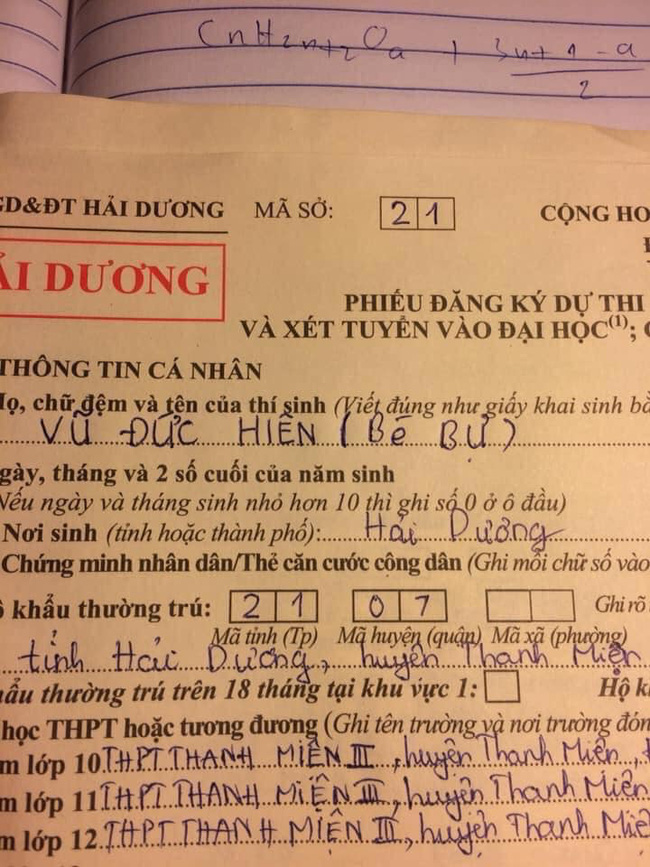 CnH2n+2Oa + 3n+1-a
2
GD&ĐT HẢI DƯƠNG MÃ SỞ: 2 1 CỘNG HO
ẢI DƯƠNG
PHIẾU ĐĂNG KÝ DỰ THI
VÀ XÉT TUYỂN VÀO ĐẠI HỌC(1); C
THÔNG TIN CÁ NHÂN
Họ, chữ đệm và tên của thí sinh (Viết đúng như giấy khai sinh bằ
VŨ ĐỨC HIỂN (Bé Bự)
gày, tháng và 2 số cuối của năm sinh
(Nếu ngày và tháng sinh nhỏ hơn 10 thì ghi số 0 ở ô đầu)
Nơi sinh (tỉnh hoặc thành phố): Hải Dương
Chứng minh nhân dân/Thẻ căn cước công dân (Ghi mỗi chữ số vào
ộ khẩu thường trú: 2 1 0 7 Ghi rõ
Mã tỉnh (Tp) Mã huyện (quận) Mã xã (phường)
tỉnh Hải Dương, huyện Thanh Miện
hẩu thường trú trên 18 tháng tại khu vực 1: Hộ k
học THPT hoặc tương đương (Ghi tên trường và nơi trường đón
m lớp 10 THPT THANH MIỆN III, huyện Thanh Miện,
m lớp 11 THPT THANH MIỆN III, huyện Thanh Miện
m lớp 12 THPT THANH MIỆN III, huyện Thanh Miện